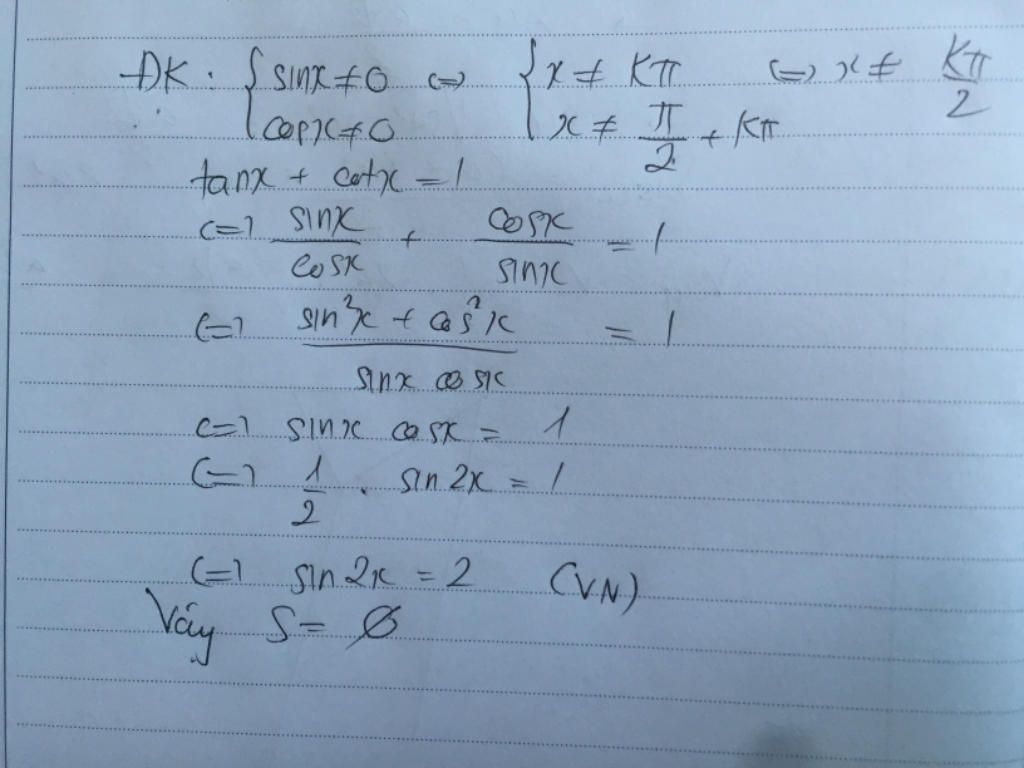 ĐK: { sinx ≠ 0 <=> { x ≠ kπ <=> x ≠ kπ/2
cosx ≠ 0 x ≠ π/2 + kπ
tanx + cotx = 1
<=> sinx/cosx + cosx/sinx = 1
<=> (sin²x + cos²x)/(sinx cosx) = 1
<=> sinx cosx = 1
<=> 1/2 . sin2x = 1
<=> sin2x = 2 (VN)
Vậy S = ∅